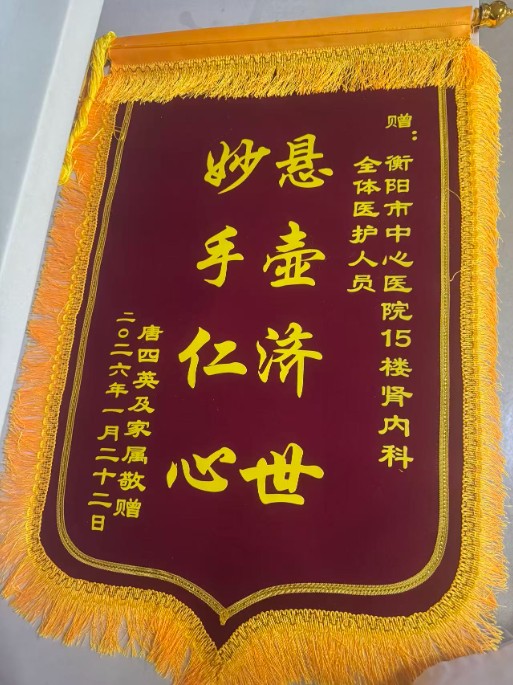 赠：衡阳市中心医院15楼肾内科
全体医护人员
悬壶济世
妙手仁心
唐四英及家属敬赠
二〇二六年一月二十二日